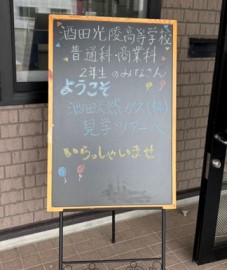 酒田光陵高等学校
普通科・商業科
2年生のみなさん
ようこそ
酒田天然ガス(株)
見学ツアーへ
いらっしゃいませ